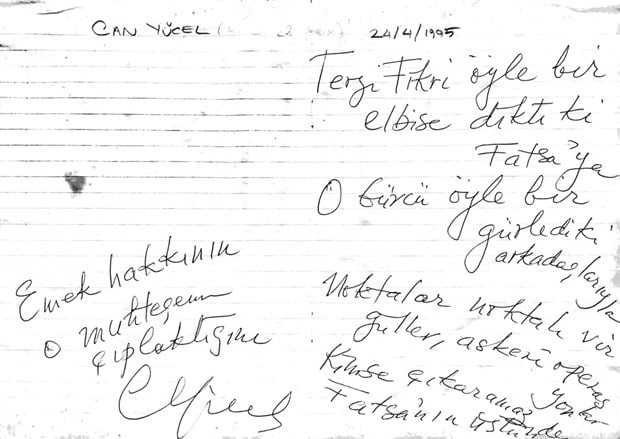 CAN YÜCEL
24/4/1995
Terzi Fikri öyle bir
elbise dikti ki
Fatsa'ya
O Gürcü öyle bir
gürledi ki
arkadaşlarıyla
Noktalar noktalı vir
güller, askeri operas
yonlar
Kimse çıkaramaz
Fatsa'nın üstünde
Emek hakkının
o muhteşem
çıplaklığını